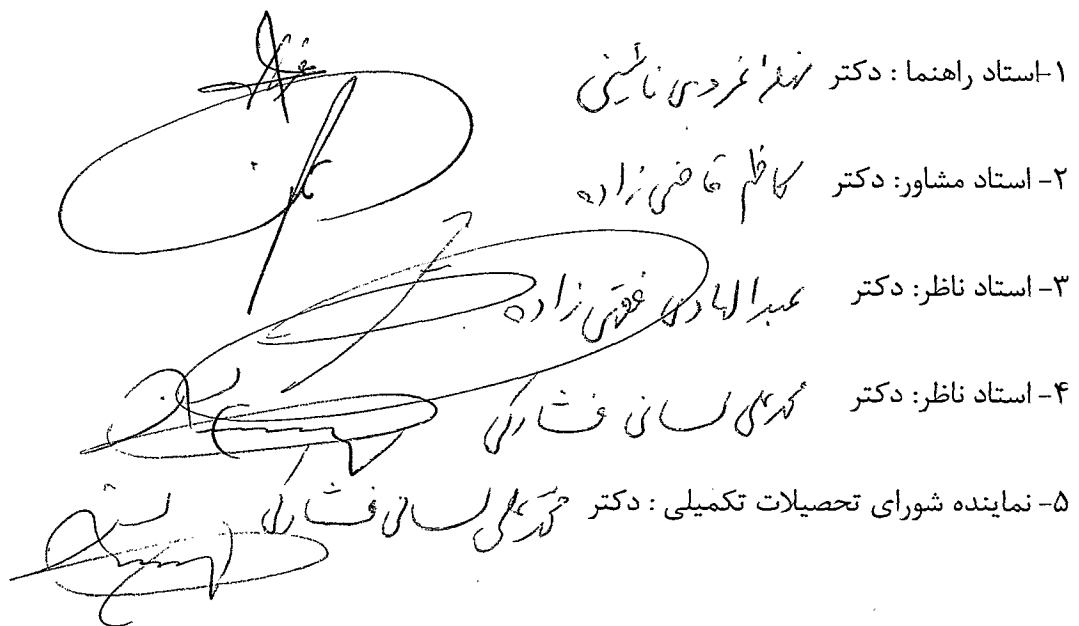 ۱-استاد راهنما : دکتر نهله غروی نائینی
۲- استاد مشاور: دکتر کاظم قاضی زاده
۳- استاد ناظر: دکتر عبدالهادی فقهی زاده
۴- استاد ناظر: دکتر محمدعلی لسانی فشارکی
۵- نماینده شورای تحصیلات تکمیلی : دکتر محمدعلی لسانی فشارکی